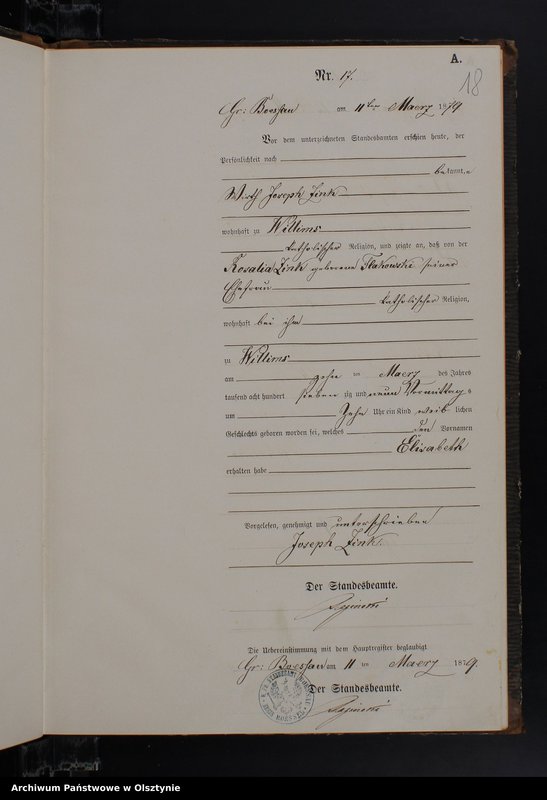 A.
18
Nr. 17.
Gr: Boessau am 11ten Maerz 1879
Vor dem unterzeichneten Standesbeamten erschien heute, der
Persönlichkeit nach
bekannt, e
Wirth Joseph Zink
wohnhaft zu Willims
katholischer Religion, und zeigte an, daß von der
Rosalia Zink geborene seiner
Ehefrau
katholischer Religion,
wohnhaft bei ihm
zu Willims
am zehn ten Maerz des Jahres
tausend acht hundert sieben zig und neun Vormittags
um Zehn Uhr ein Kind weib lichen
Geschlechts geboren worden sei, welches den Vornamen
Elisabeth
erhalten habe
Vorgelesen, genehmigt und unterschrieben
Joseph Zink.
Der Standesbeamte.
Die Uebereinstimmung mit dem Hauptregister beglaubigt
Gr: Boessau am 11 ten Maerz 1879.
Der Standesbeamte.
Archiwum Państwowe w Olsztynie